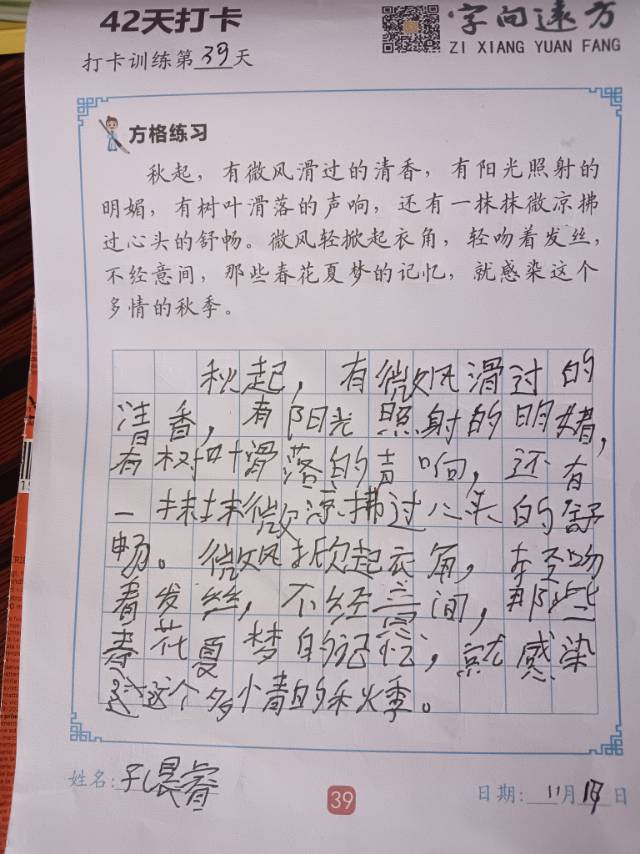 42天打卡
字向远方
ZI XIANG YUAN FANG
打卡训练第39天
方格练习
秋起，有微风滑过的清香，有阳光照射的
明媚，有树叶滑落的声响，还有一抹抹微凉拂
过心头的舒畅。微风轻掀起衣角，轻吻着发丝，
不经意间，那些春花夏梦的记忆，就感染这个
多情的秋季。
秋起，有微风滑过的
清香，有阳光照射的明媚，
有树叶滑落的声响，还有
一抹抹微凉拂过心头的舒
畅。微风掀起衣角，轻吻
着发丝，不经意间，那些
春花夏梦的记忆，就感染
这个多情的秋季。
姓名：孔晨睿
39
日期：11月19日